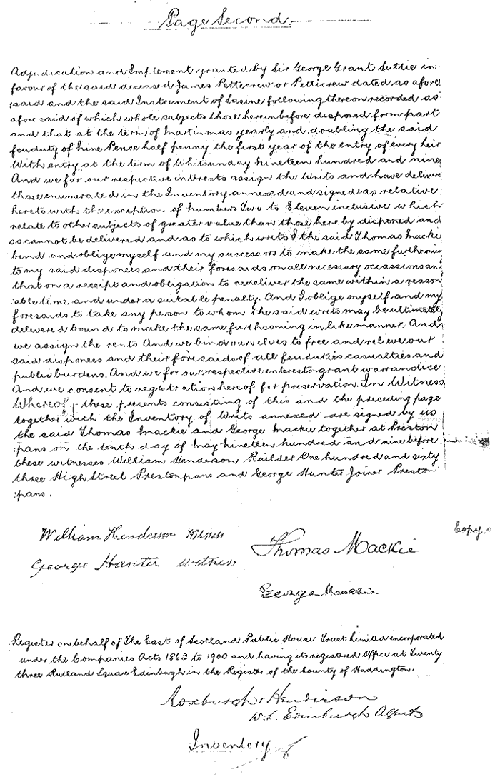 Page Second
Adjudication and Implement granted by Sir George Grant Suttie in
favour of the said deceased James Pettierew or Pettigrew dated as afore
said and the said Instrument of Sasine following thereon recorded as
afore said of which whole subjects those hereinbefore disponed form part
and that at the term of Martinmas yearly and doubling the said
feu duty of Nine Pence half penny the first year of the entry of every heir
With entry at the term of Whitsunday nineteen hundred and nine
And we for our respective interests assign the Writs and have delivered
those enumerated in the Inventory annexed and signed as relative
hereto with the exception of numbers Two to Eleven inclusive which
relate to other subjects of greater value than those hereby disponed and
so cannot be delivered and as to which writs I the said Thomas Mackie
bind and oblige myself and my successors to make the same furthcoming
to my said disponees and their foresaids on all necessary occasions on
that on a receipt and obligation to redeliver the same within a reason
able time and under a suitable penalty. And I oblige myself and my
foresaids to take any person to whom the said writs may be ultimately
delivered bound to make the same furthcoming in like manner And
we assign the rents And we bind ourselves to free and relieve our
said disponees and their foresaids of all feuduties casualties and
public burdens. And we for our respective interests grant warrandice
And we consent to registration hereof for preservation In Witness
Whereof these presents consisting of this and the preceding page
together with the Inventory of Writs annexed are signed by us
the said Thomas Mackie and George Mackie together at Preston
pans on the tenth day of May nineteen hundred and nine before
these witnesses William Henderson Builder One hundred and sixty
three High Street Prestonpans and George Hunter Joiner Preston
pans.
William Henderson Witness
George Hunter Witness
Thomas Mackie
George Mackie
Copy
Register on behalf of The East of Scotland Public House Trust Limited incorporated
under the Companies Acts 1862 to 1900 and having its registered Office at Twenty
three Rutland Square Edinburgh in the Register of the County of Haddington.
Roxburgh Henderson
W.S. Edinburgh Agents
Inventory